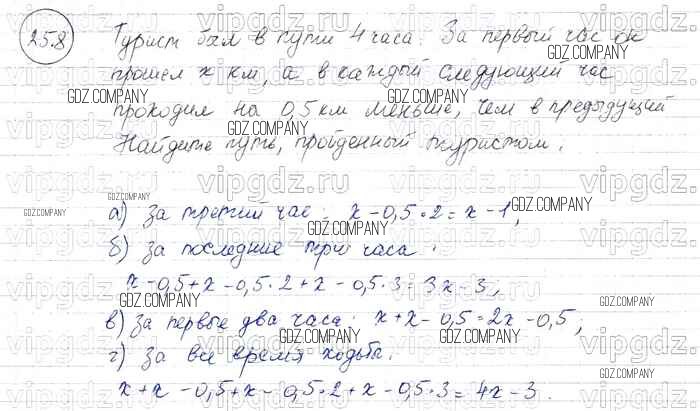 25.8 Турист был в пути 4 часа. За первый час он
прошел x км, а в каждый следующий час
проходил на 0,5 км меньше, чем в предыдущий
Найдите путь, пройденный туристом.
а) за третий час: x - 0,5 · 2 = x - 1,
б) за последние три часа:
x - 0,5 + x - 0,5 · 2 + x - 0,5 · 3 = 3x - 3,
в) за первые два часа: x + x - 0,5 = 2x - 0,5;
г) за все время ходьба.
x + x - 0,5 + x - 0,5 · 2 + x - 0,5 · 3 = 4x - 3.